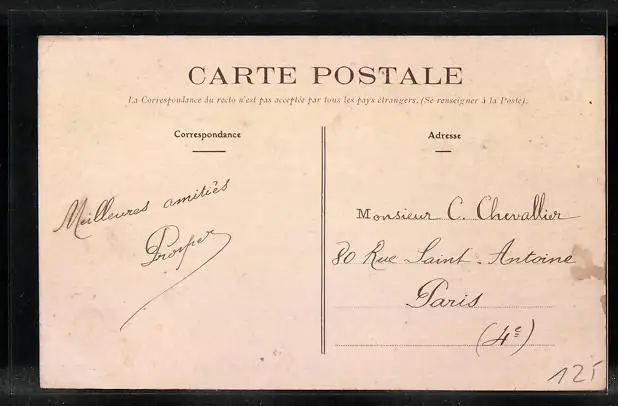 CARTE POSTALE
La Correspondance du recto n'est pas acceptée par tous les pays étrangers. (Se renseigner à la Poste).
Correspondance
Meilleures amitiés
Prosper
Adresse
Monsieur C. Chevallier
80 Rue Saint-Antoine
Paris
(4e)
125